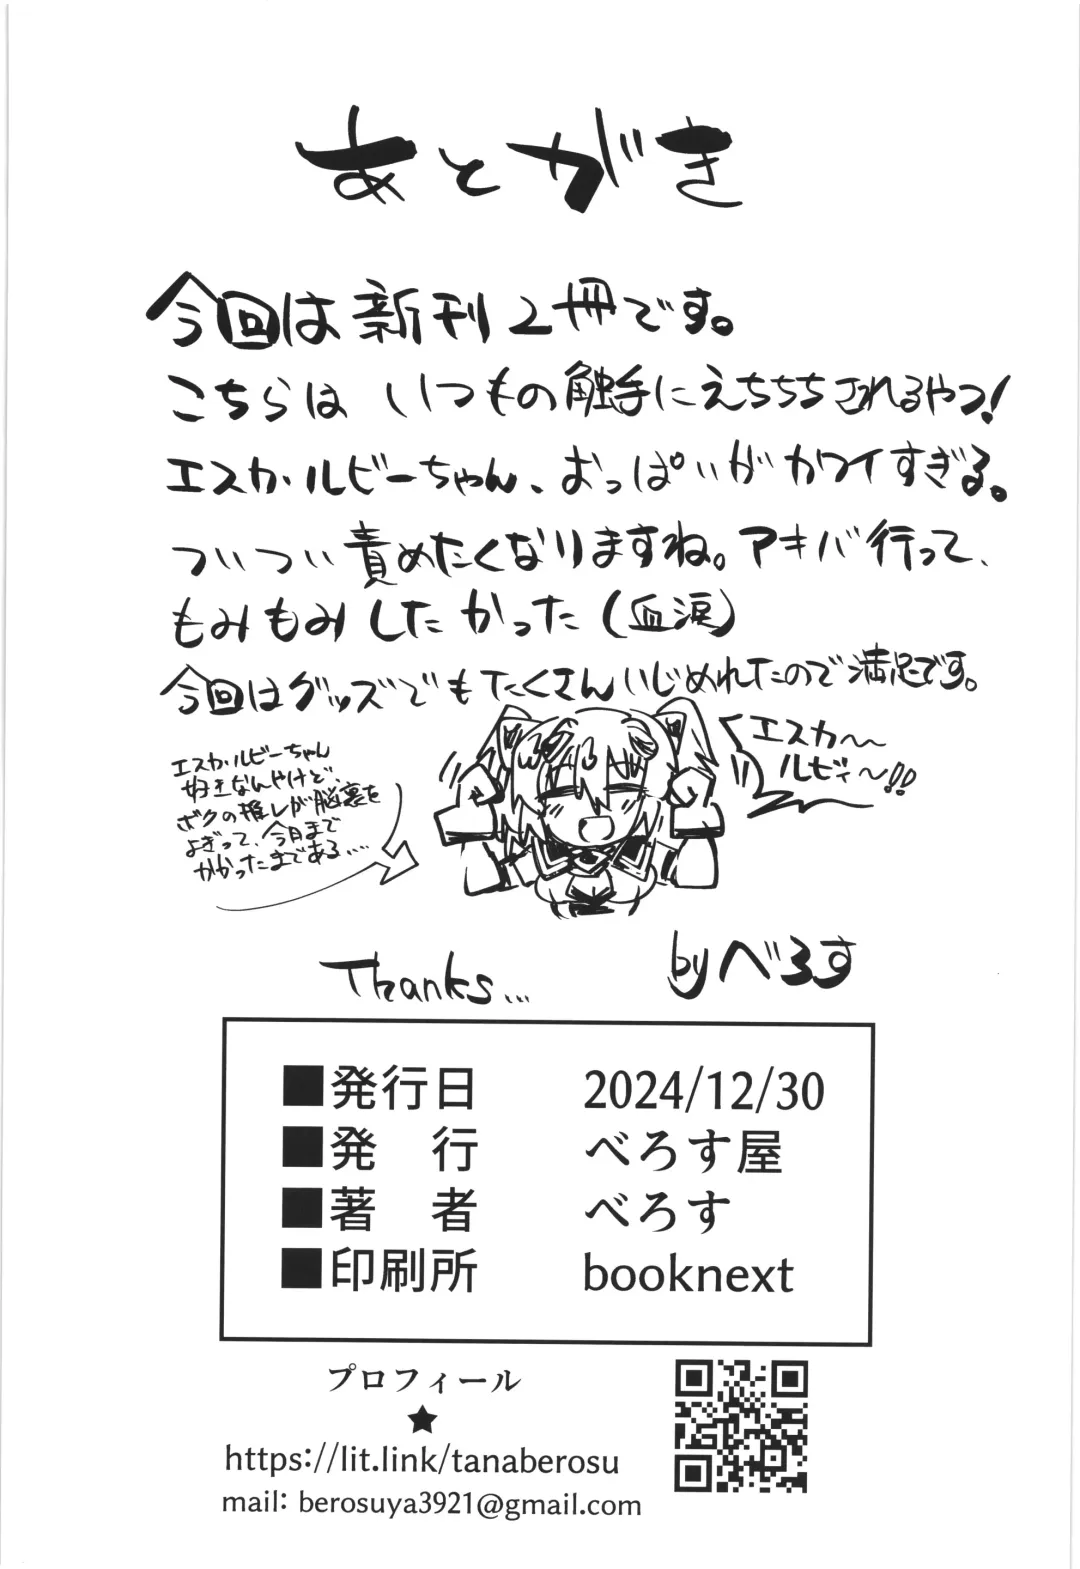 あとがき
今回は新刊2冊です。
こちらは いつもの触手にえちちちされるやつ!
エスカ・ルビーちゃん、おっぱいがカワイすぎる。
ついつい責めたくなりますね。アキバ行って、
もみもみしたかった(血涙)
今回はグッズでもたくさんいじめれたので満足です。
エスカ〜〜
ルビィ〜!!
エスカ・ルビーちゃん
好きなんやけど、
ボクの推しが脳裏を
よぎって、今日まで
かかったまである....
Thanks...
byべろす
■発行日 2024/12/30
■発 行 べろす屋
■著 者 べろす
■印刷所 booknext
プロフィール
★
https://lit.link/tanaberosu
mail: berosuya3921@gmail.com